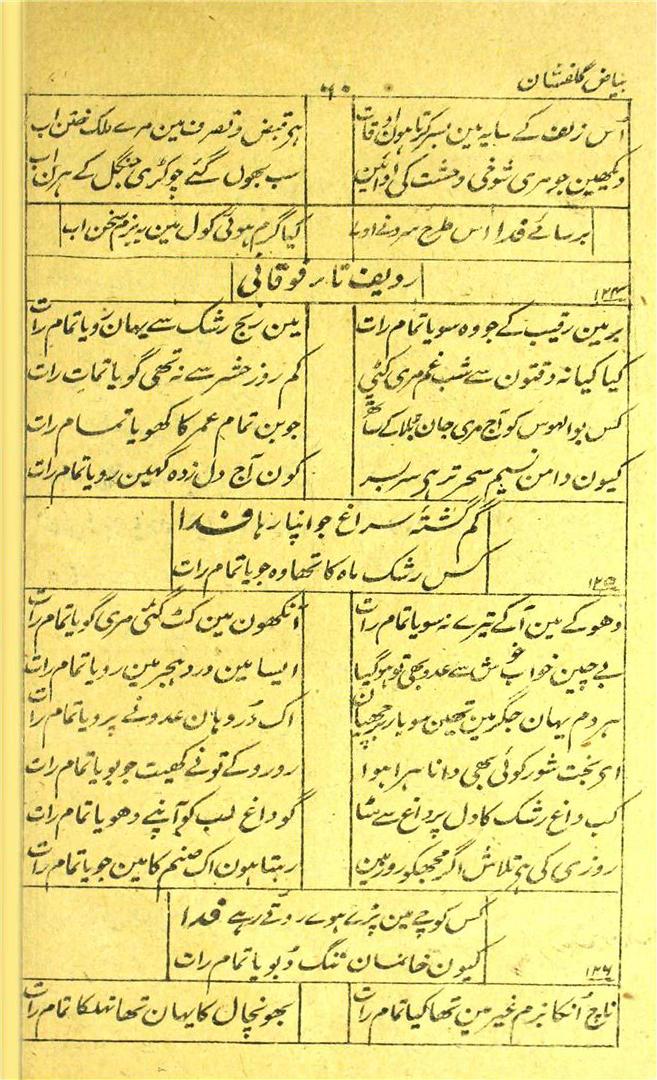 بیاض گلفشان
۶۰
اُس زلف کے سایہ مین بسر کرتا ہون اوقات
ہی قبض و تصرف مین مرے ملک ختن اب
دیکھین جو مری شوخی وحشت کی ادائین
سب بھول گئے چوکڑی جنگل کے ہرن اب
برسائے فدا اس طرح
کیا گرم ہوئی گول مین یہ بزم سخن اب
ردیف تاے فوقانی
۱۲۴
بر مین رقیب کے جو وہ سویا تمام رات
مین رنج رشک سے یہان رویا تمام رات
کیا کیا نہ دقتون سے شب غم مری کٹی
کم روز حشر سے نہ تھی گویا تمام رات
کس بوالہوس کو آج مری جان جلا کے ساتھ
جوبن تمام عمر کا کھویا تمام رات
کیون دامن نسیم سحر تر ہی سر بسر
کون آج دل زدہ کہین رویا تمام رات
گم گشتہ سراغ جو اپنا رہا فدا
کس رشک ماہ کا تھا وہ جویا تمام رات
۱۲۵
دھوکے مین آکے تیرے نہ سویا تمام رات
آنکھون مین کٹ گئی مری گویا تمام رات
بے چین خواب خوش سے عدو بھی تو ہو گیا
ایسا مین درد ہجر مین رویا تمام رات
ہر دم یہان جگر مین تھین سو بار برچھیان
اک دُر وہان عدو نے پرویا تمام رات
ای بخت شور کوئی بھی دانا ہرا ہوا
رو رو کے تونے کھیت جو بویا تمام رات
کب داغ رشک کا دل پر داغ سے مٹا
گو داغ لب کو آپنے دھویا تمام رات
روزی کی ہی تلاش اگر مجھکو روز مین
رہتا ہون اک صنم کا مین جویا تمام رات
کس کوچے مین پڑے ہوے روتے رہے فدا
کیون خانمان تنگ ڈبویا تمام رات
۱۲۶
ناچ اُنکا بزم غیر مین تھا کیا تمام رات
بھونچال کا یہان تھا تہلکا تمام رات